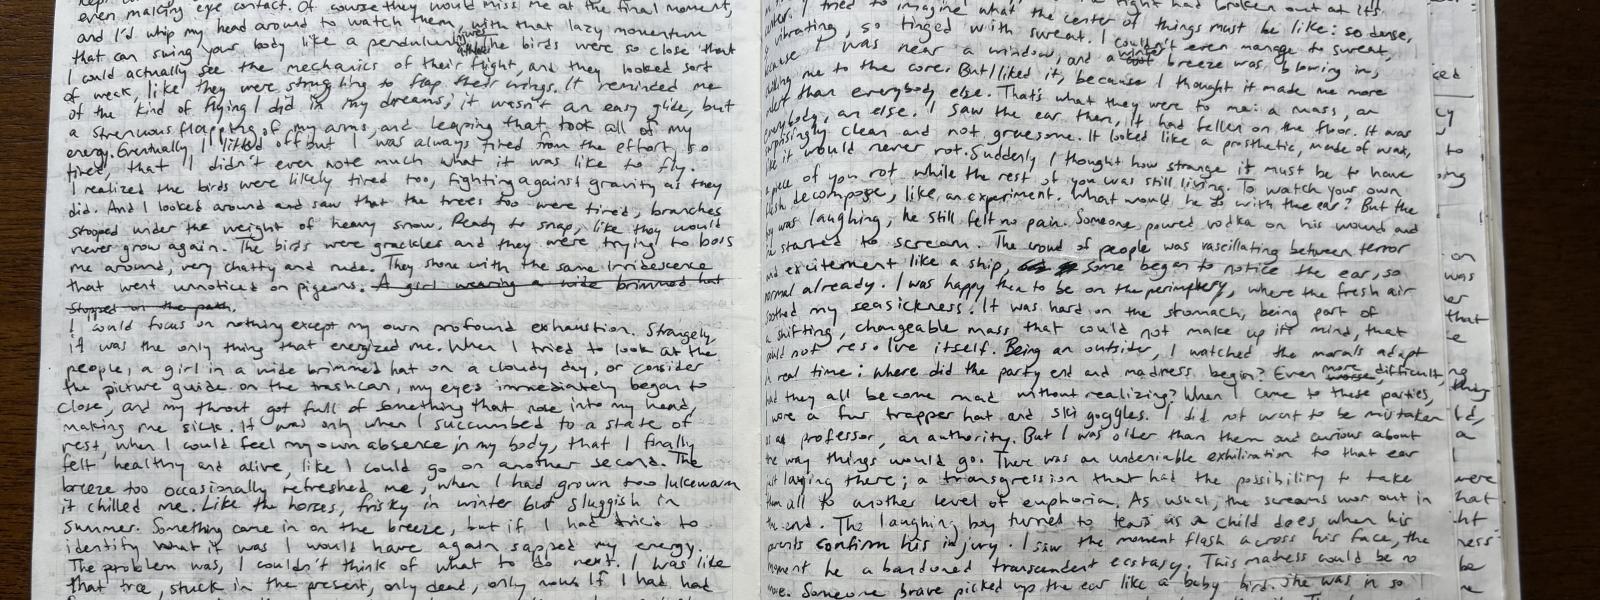 even making eye contact. Of course they would miss me at the final moment,
and I'd whip my head around to watch them, with that lazy momentum
that can swing your body like a pendulum. The birds were so close that
I could actually see the mechanics of their flight, and they looked sort
of weak, like they were struggling to flap their wings. It reminded me
of the kind of flying I did in my dreams, it wasn't an easy glide, but
a strenuous flapping of my arms, and leaping that took all of my
energy. Eventually I lifted off but I was always tired from the effort, so
tired, that I didn't even note much what it was like to fly.
I realized the birds were likely tired too, fighting against gravity as they
did. And I looked around and saw that the trees too were tired, branches
stooped under the weight of heavy snow. Ready to snap, like they would
never grow again. The birds were grackles and they were trying to boss
me around, very chatty and rude. They shone with the same irridescence
that went unnoticed on pigeons. A girl wearing a wide brimmed hat
stopped on the path.
I could focus on nothing except my own profound exhaustion. Strangely,
it was the only thing that energized me. When I tried to look at the
people, a girl in a wide brimmed hat on a cloudy day, or consider
the picture guide on the trashcan, my eyes immediately began to
close, and my throat got full of something that rose into my head,
making me sick. It was only when I succumbed to a state of
rest, when I could feel my own absence in my body, that I finally
felt healthy and alive, like I could go on another second. The
breeze too occasionally refreshed me, when I had grown too lukewarm
it chilled me. Like the horses, frisky in winter but sluggish in
summer. Something came in on the breeze, but if I had tried to
identify what it was I would have again sapped my energy.
The problem was, I couldn't think of what to do next. I was like
that tree, stuck in the present, only dead, only now. If I had had
I tried to imagine what the center of things must be like: so dense,
vibrating, so tinged with sweat. I couldn't even manage to sweat,
I was near a window, and a winter breeze was blowing in,
me to the core. But I liked it, because I thought it made me more
than everybody else. That's what they were to me: a mass, an
everybody, an else. I saw the ear then, it had fallen on the floor. It was
surprisingly clean and not gruesome. It looked like a prosthetic, made of wax,
like it would never rot. Suddenly I thought how strange it must be to have
a piece of you rot while the rest of you was still living. To watch your own
flesh decompose, like an experiment. What would he do with the ear? But the
boy was laughing, he still felt no pain. Someone poured vodka on his wound and
he started to scream. The crowd of people was vascillating between terror
and excitement like a ship, Some began to notice the ear, so
normal already. I was happy then to be on the periphery, where the fresh air
soothed my seasickness. It was hard on the stomach, being part of
a shifting, changeable mass, that could not make up its mind, that
could not resolve itself. Being an outsider, I watched the morals adapt
in real time: where did the party end and madness begin? Even more difficult,
had they all become mad without realizing? When I came to these parties,
I wore a fur trapper hat and ski goggles. I did not want to be mistaken
as a professor, an authority. But I was older than them and curious about
the way things would go. There was an undeniable exhiliration to that ear
just laying there; a transgression that had the possibility to take
them all to another level of euphoria. As usual, the screams won out in
the end. The laughing boy turned to tears as a child does when his
parents confirm his injury. I saw the moment flash across his face, the
moment he abandoned transcendent ecstasy. This madness would be no
more. Someone brave picked up the ear like a baby bird. She was in so
cy
to
on
was
that
a
were
hat
be